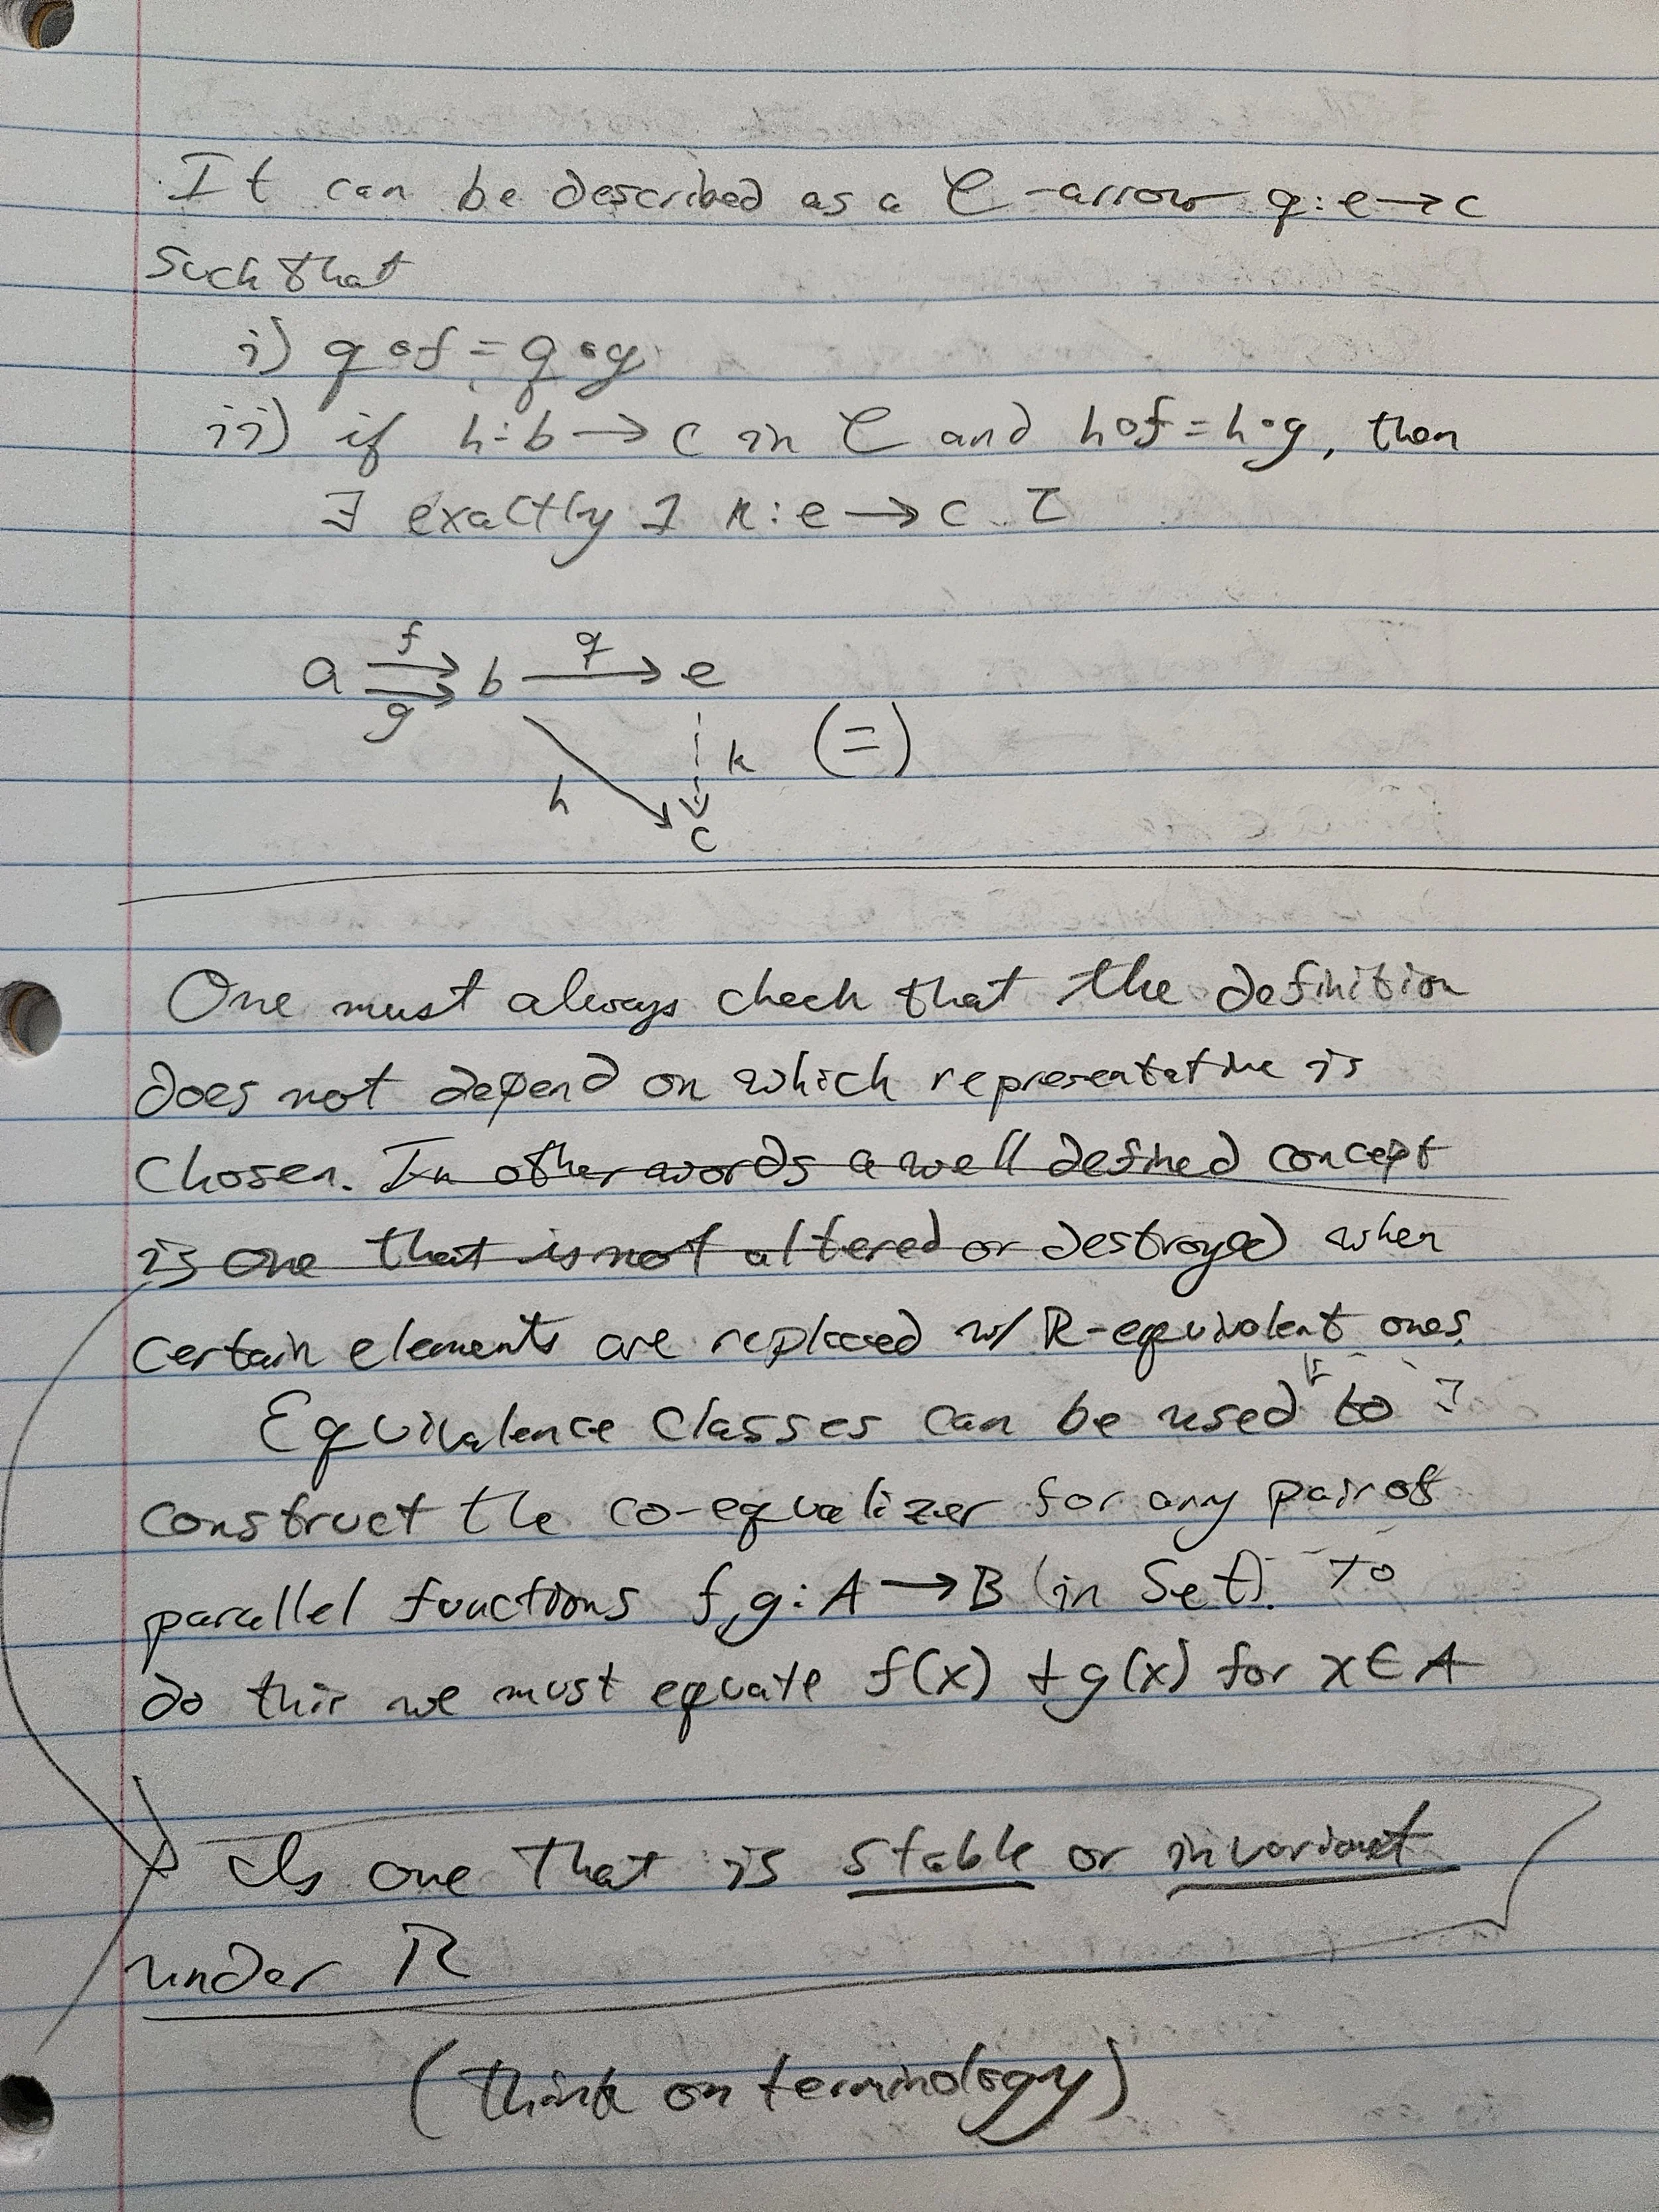 It can be described as a 𝒞-arrow q: e → c
such that
i) q∘f = q∘g
ii) if h: b → c in 𝒞 and h∘f = h∘g, then
∃ exactly 1 k: e → c
f
a ⇉ b → e
q
g
h
k (=)
c
One must always check that the definition
does not depend on which representative is
chosen. In other words a well defined concept
is one that is not altered or destroyed when
certain elements are replaced w/ R-equivalent ones.
Equivalence classes can be used to
construct the co-equalizer for any pair of
parallel functions f,g: A → B (in Set). To
do this we must equate f(x) + g(x) for x ∈ A
Is one that is stable or invariant
under R
(think on terminology)